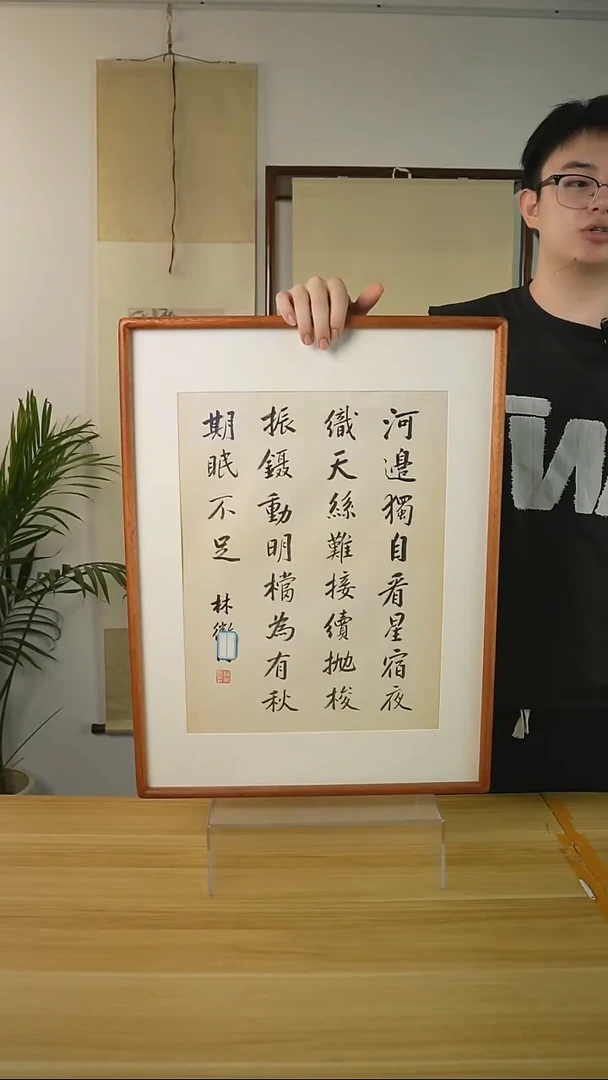 河邊獨自看星宿夜
織天絲難接續拋梭
振鑷動明檔為有秋
期眠不足
林